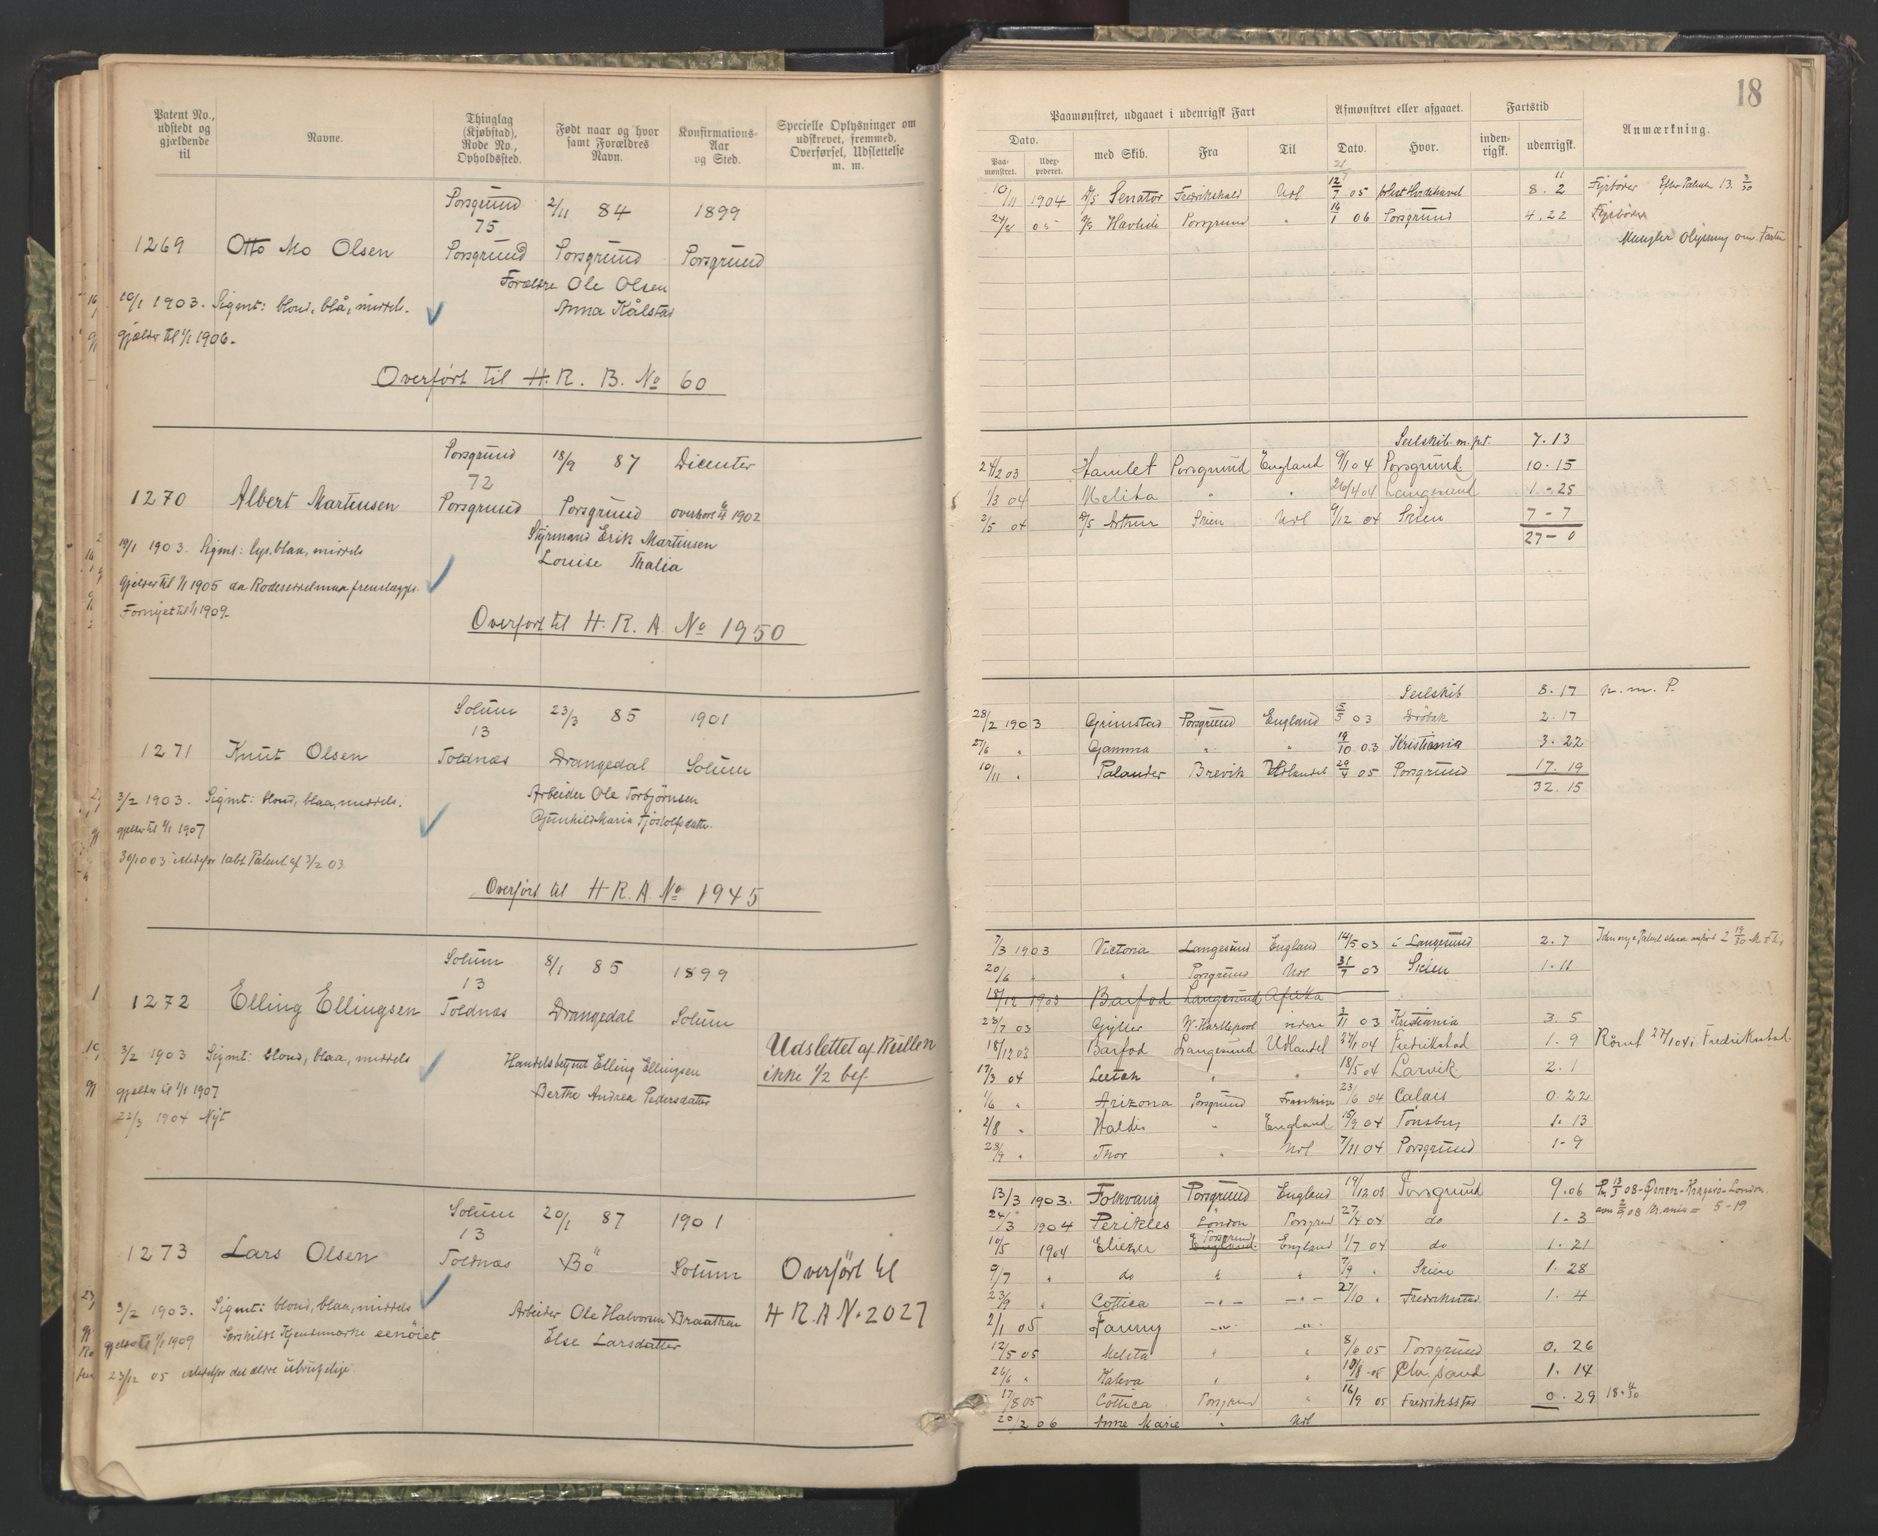 Patent No., udstedt og gjældende til
Navne.
Thinglag (Kjøbstad), Rode No., Opholdssted.
Født naar og hvor samt Forældres Navn.
Konfirmations-Aar og Sted.
Specielle Oplysninger om udskrevet, fremmed, Overførsel, Udslettelse m. m.
Porsgrund 2/11 84 1899
75
1269 Otto Mo Olsen Porsgrund Porsgrund Porsgrund
Forældre Ole Olsen
10/1 1903. Sigmt: blond, blå, middels. Anna Kålstad
gjælder til 1/1 1906.
Overført til H. R. B. No 60
Porsgrund 18/9 87 Dicenter
72
1270 Albert Martensen Porsgrund Porsgrund overhørt 1902
Styrmand Erik Martensen
19/1 1903. Sigmt: lys, blaa, middels
Louise Thalia
gjelder til 1/1 1905 da Rodeseddel maa fremlægges.
Fornyet til 1/1 1909
Overført til H. R. A. No 1950
Solum 23/3 85 1901
13
1271 Knut Olsen Toldnæs Drangedal Solum
Arbeider Ole Torbjørnsen
3/2 1903. Sigmt: blond, blaa, middels.
Gunhild Maria Tjostolfsdatter
gjelder til 1/1 1907
30/10 03 Patent af 3/2 03
Overført til H R. A. No 1945
Solum 8/1 85 1899
13
1272 Elling Ellingsen Toldnæs Drangedal Solum
Udslettet af Rullen
ikke 1/2 bef.
3/2 1903 Sigmt: blond, blaa, middels Elling Ellingsen
gjelder til 1/1 1907 Berthe Andrea Pedersdatter
22/3 1904 Nyt
Solum 20/1 87 1901
13
1273 Lars Olsen Toldnæs Bö Solum
Overført til
H R A N. 2027
3/2 1903. Sigmt: blond, blaa, middels Arbeider Ole Halvorsen Braathen
gjelder til 1/1 1909 Særskildt Kjendemærke eenöiet Else Larsdatter
23/12 05
18
Paamønstret, udgaaet i udenrigsk Fart
Afmønstret eller afgaaet.
Fartstid
Anmærkning.
Dato. med Skib. Fra Til Dato. Hvor. inden-rigsk. udenrigsk.
Paa-mønstret. Udex-pederet.
10/11 1904 D/S Senator Fredrikshald Udl 12/7 05 8. 2 Fyrbøder Efter Patent 13. 3/30
24/8 05 D/S Porsgrund " 16/1 06 Porsgrund 4. 22 Fyrbøder
Mangler Olysning om Farten
Seilskib m. pt. 7. 13
24/12 03 Hamlet Porsgrund England 9/1 04 Porsgrund 10. 15
1/3 04 Melita " " 26/4 04 Langesund 1 - 25
2/5 04 D/S Arthur Skien Udl 9/12 04 Skien 7 - 7
27 - 0
Seilskib 8. 17 n. m. P.
28/2 1903 Grimstad Porsgrund England 15/5 03 Drøbak 2. 17
27/6 " Gamma " " 19/10 03 Kristiania 3. 22
10/11 " Palander Brevik Udlandet 29/4 05 Porsgrund 17. 19
32. 15
7/3 1903 Victoria Langesund England 14/5 03 i Langesund 2. 7
20/6 " " Porsgrund Udl 31/7 03 Skien 1. 11
18/12 1903 Barfod Langesund Afrika
23/7 03 Gyller W. Hartlepool videre 3/11 03 Kristiania 3. 5
18/12 03 Barfod Langesund Udlandet 27/1 04 Fredrikstad 1. 9 Römt 27/1 04 i Fredrikstad
17/3 04 " " 18/5 04 Larvik 2. 1
1/6 " Arizona Porsgrund Frankrige 23/6 04 Calais 0. 22
2/8 " " England 15/9 04 Tønsberg 1. 13
28/9 " Thor " Udl 7/11 04 Porsgrund 1 - 9
13/3 1903. Folkvang Porsgrund England 19/12 03 Porsgrund 9. 06
24/3 1904 Perikles London Porsgrund 27/4 04 do 1. 3
10/5 1904 Eliezer England Porsgrund England 1/7 04 do 1. 21
9/7 " do " " 7/9 " Skien 1. 28
23/9 " Cottica -"- -"- 27/10 " Fredrikstad 1. 4
2/1 05 Fanny -"- -"-
12/5 05 Melita " " 8/6 05 Porsgrund 0. 26
26/6 " Kaleva " " Chr. sand 1. 14
17/8 05 Cottica Porsgrund " 16/9 05 Fredriksstad 0. 29
20/2 06 Anne Marie " Udl